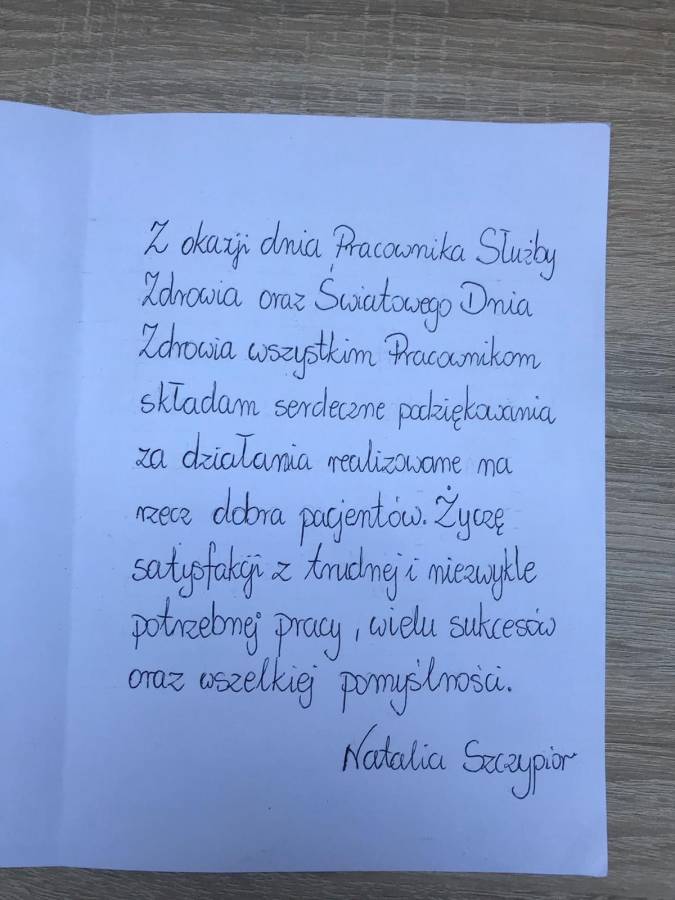 Z okazji dnia Pracownika Służby
Zdrowia oraz Światowego Dnia
Zdrowia wszystkim Pracownikom
składam serdeczne podziękowania
za działania realizowane na
rzecz dobra pacjentów. Życzę
satysfakcji z trudnej i niezwykle
potrzebnej pracy, wielu sukcesów
oraz wszelkiej pomyślności.
Natalia Szczypior